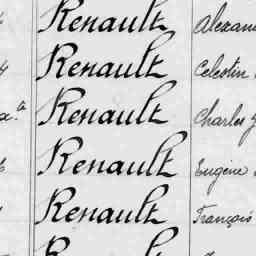 Renault Alexan
Renault Celestin
Renault Charles J
Renault Eugène
Renault François